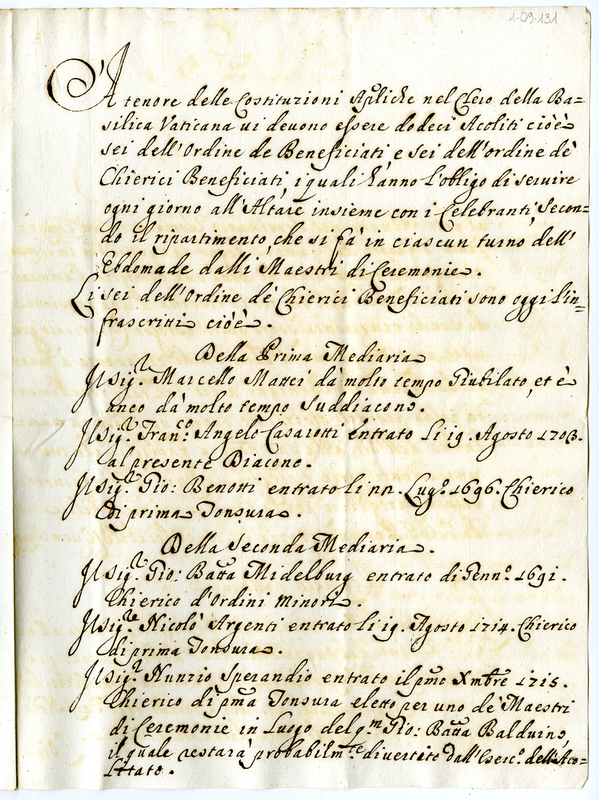 1-09-131
A tenore delle Costituzioni Apliche nel Clero della Ba=
silica Vaticana vi devono essere dodeci Acoliti cioè
sei dell'Ordine de Beneficiati, e sei dell'ordine dè
Chierici Beneficiati, i quali hanno l'obligo di servire
ogni giorno all'Altare insieme con i Celebranti, Secon=
do il ripartimento, che si fà in ciascun turno, dell'
Ebdomade dalli Maestri di Ceremonie.
Li sei dell'Ordine dè Chierici Beneficiati sono oggi l'in=
frascritti cioè.
Della Prima Mediaria
Il Sig.r Marcello Mattei dà molto tempo Giubilato, et è
anco dà molto tempo Suddiacono.
Il Sig.r Fran.co Angelo Casarotti entrato li 19. Agosto 1703.
al presente Diacono.
Il Sig.r Gio: Benotti entrato li 22. Lug.o 1696. Chierico
di prima Tonsura.
Della Seconda Mediaria.
Il Sig.r Gio: Batta Midelburg entrato di Genn.o 1691.
Chierico d'Ordini Minori.
Il Sig.re Nicolò Argenti entrato li 19. Agosto 1714. Chierico
di prima Tonsura.
Il Sig.r Nunzio Sperandio entrato il pmo Xmbre 1715.
Chierico di pma Tonsura eletto per uno dè Maestri
di Ceremonie in Luogo del q.m Gio: Batta Balduino,
il quale restarà probabilm.te divertito dall'Eserc.o dell'Aco=
litato.